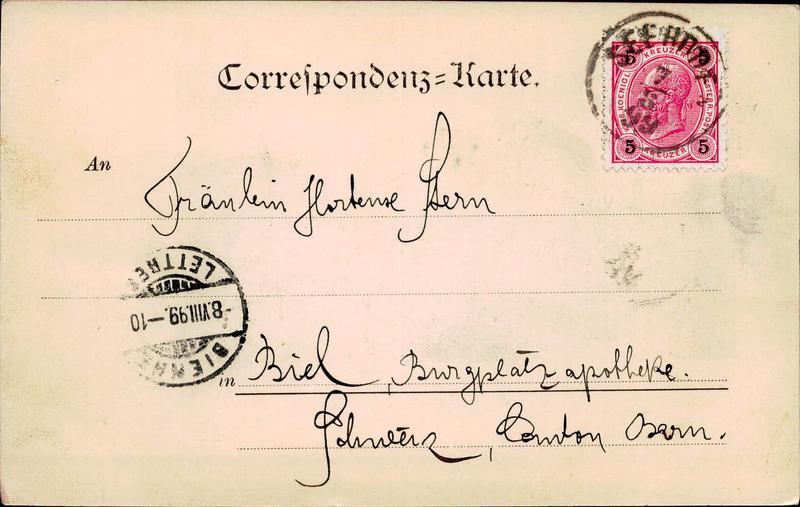 Correspondenz-Karte.
5 KREUZER 5
5 KREUZER 5
An
Fräulein Hortense Stern
LETTRES
-8.VIII.99.-10
BIENNE
in Biel, Burgplatzapotheke.
Schweiz, Canton Bern.